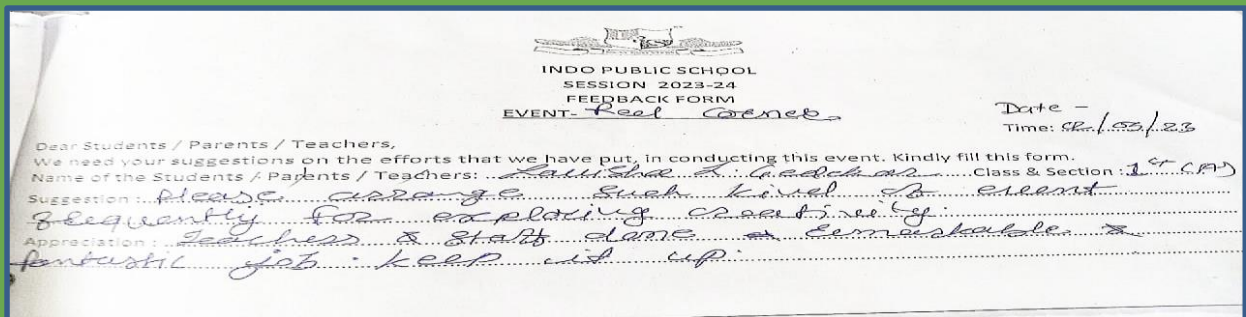 INDO PUBLIC SCHOOL
SESSION 2023-24
FEEDBACK FORM
EVENT- Reel Corner
Date -
Time: 02/05/23
Dear Students / Parents / Teachers,
We need your suggestions on the efforts that we have put, in conducting this event. Kindly fill this form.
Name of the Students / Parents / Teachers: Class & Section : 1st (A)
Suggestion : Please arrange such kind of event
frequently for exploring creativity.
Appreciation : Teachers & Staff done a remarkable &
fantastic job. keep it up.